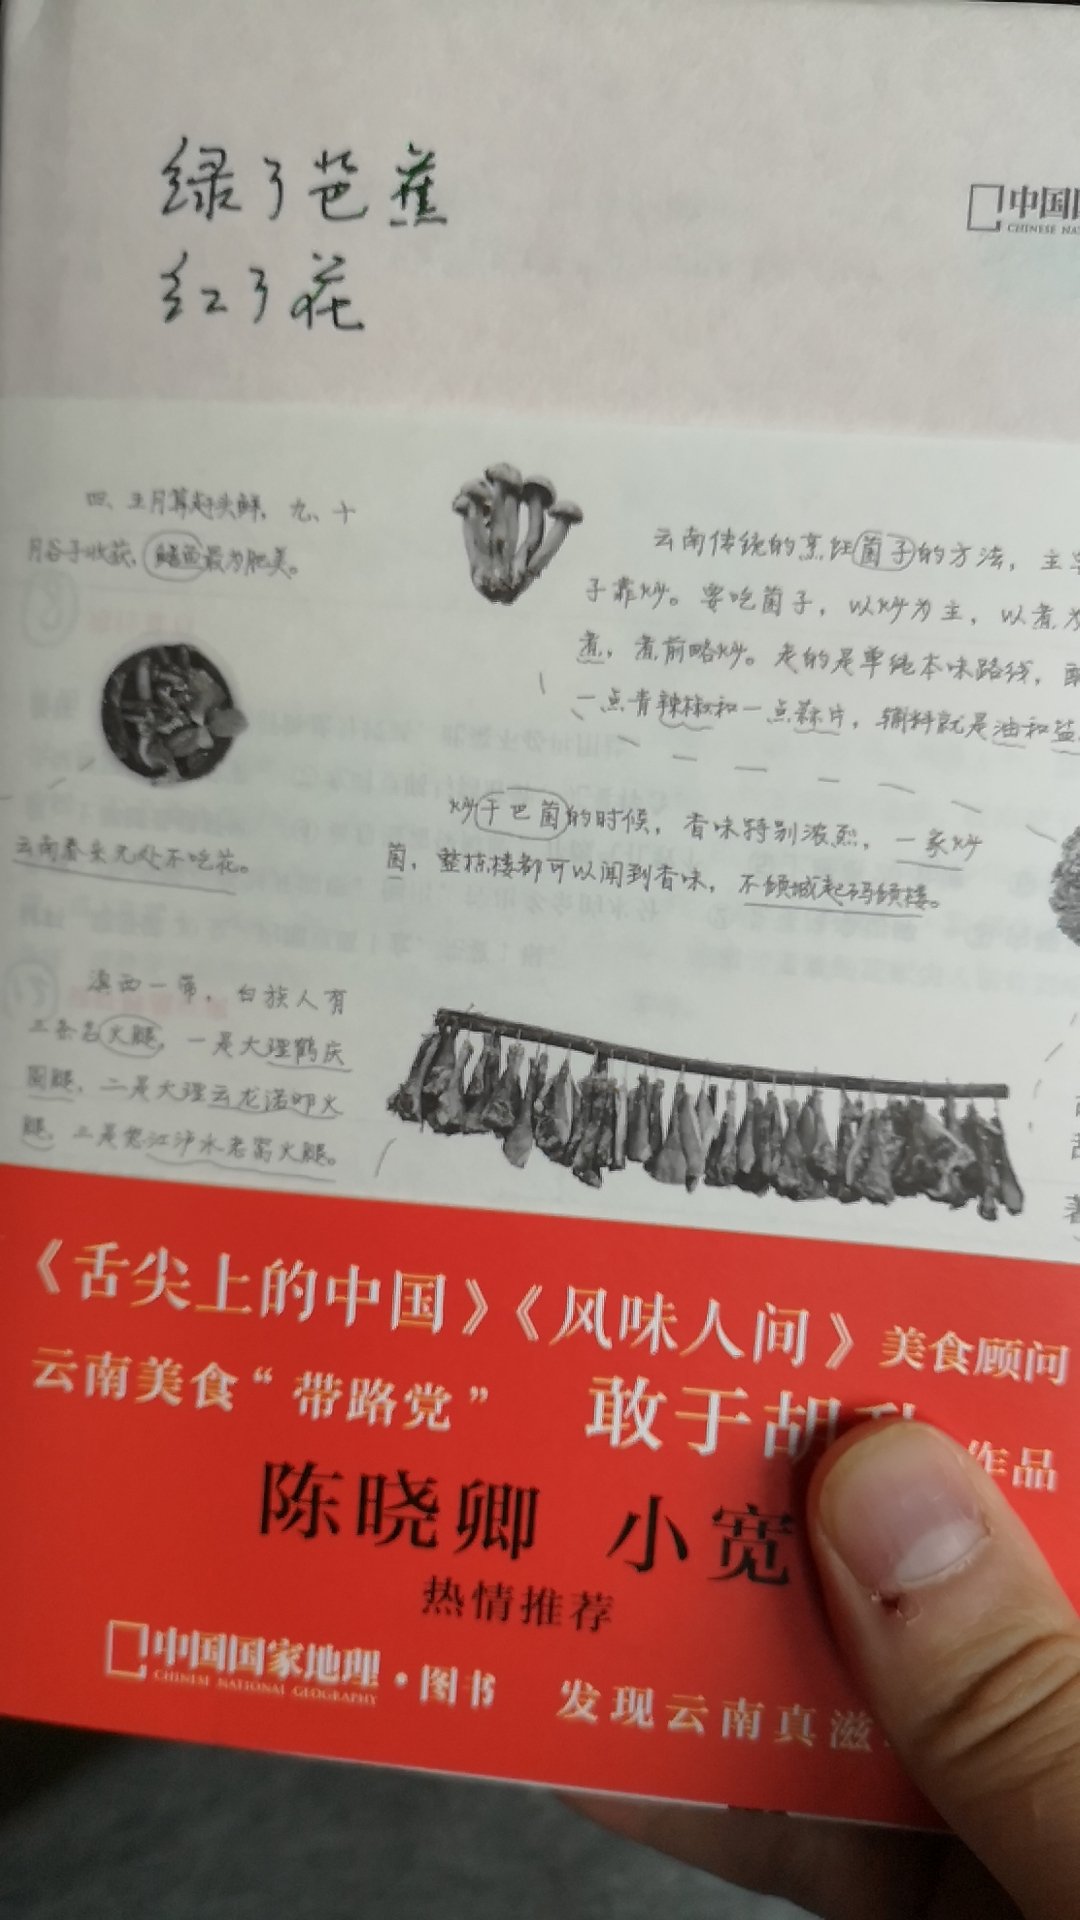 绿了芭蕉
红了花
中国
CHINESE NA
四、五月算赶头鲜，九、十
月谷子收获，鳝鱼最为肥美。
云南传统的烹饪菌子的方法，主
子靠炒。要吃菌子，以炒为主，以煮为
煮，煮前略炒。走的是单纯本味路线，配
一点青辣椒和一点蒜片，辅料就是油和盐
炒干巴菌的时候，香味特别浓烈，一家炒
菌，整栋楼都可以闻到香味，不倾城起码倾楼。
云南春来无处不吃花。
滇西一带，白族人有
三条名火腿，一是大理鹤庆
圆腿，二是大理云龙诺邓火
腿，三是怒江泸水老窝火腿。
《舌尖上的中国》《风味人间》美食顾问
云南美食“带路党” 敢于胡 作品
陈晓卿 小宽
热情推荐
中国国家地理·图书
CHINESE NATIONAL GEOGRAPHY
发现云南真滋